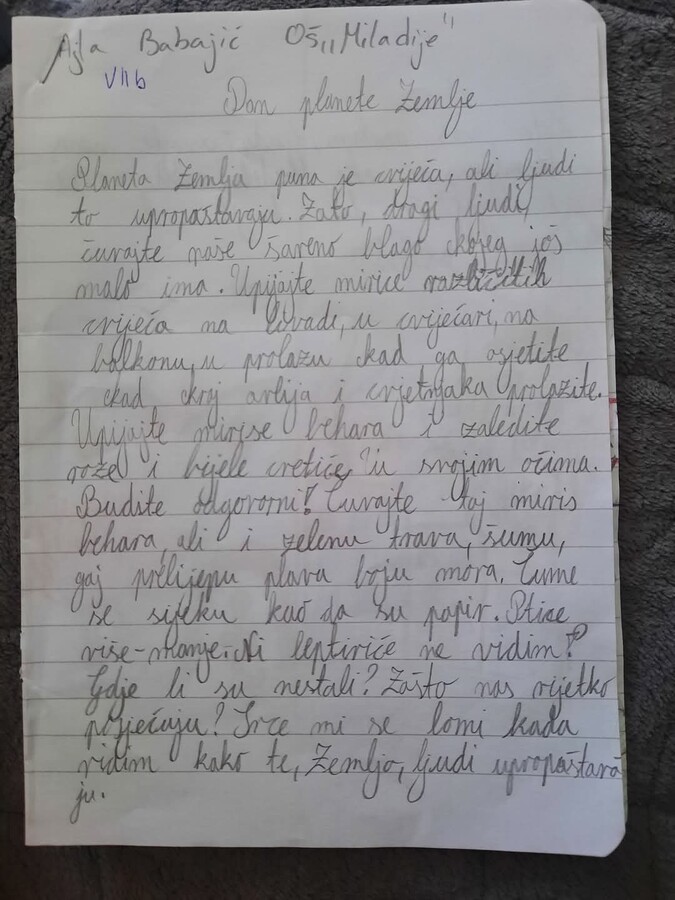 Ajla Babajić OŠ,,Miladije"
VII b
Dan planete Zemlje
Planeta Zemlja puna je cvijeća, ali ljudi
to upropaštavaju. Zato, dragi ljudi,
čuvajte naše šareno blago kojeg još
malo ima. Upijajte mirise različitih
cvijeća na livadi, u cvjećari, na
balkonu, u prolazu kad ga osjetite
kad kroj avlija i cvjetnjaka prolazite.
Upijajte mirise behara i zaledite
roze i bijele cvetiće u svojim očima.
Budite odgovorni! Čuvajte taj miris
behara, ali i zelenu travu, šumu,
gaj prelijepu plavu boju mora. Šume
se sijeku kao da su papir. Ptice
više-manje. Ni leptiriće ne vidim?
Gdje li su nestali? Zašto nas rijetko
posjećuju? Srce mi se lomi kada
vidim kako te, Zemljo, ljudi upropaštava
ju.